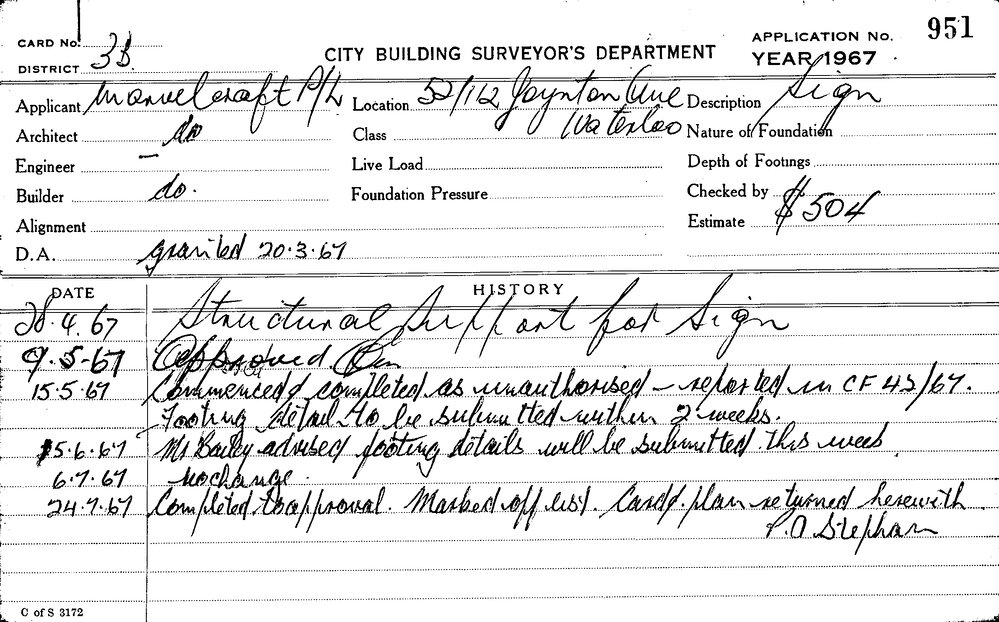 CARD No. APPLICATION No. 951
DISTRICT 3B. CITY BUILDING SURVEYOR'S DEPARTMENT YEAR 1967
Applicant Marvelcraft P/L Location 52/112 Joynton Ave Description Sign
Waterloo
Architect do Class Nature of Foundation
Engineer – Live Load Depth of Footings
Builder do. Foundation Pressure Checked by
Alignment Estimate $504
D.A. granted 20.3.67
DATE HISTORY
28.4.67 Structural Support for Sign
9.5-67 Approved
15.5.67 Commenced & completed as unauthorised – reported in CF 43/67.
Footing detail to be submitted within 2 weeks.
15.6.67 Mr Bailey advised footing details will be submitted this week
6.7.67 No change
24.7.67 Completed to approval. Marked off list. Card & plan returned herewith
P.A Stephan
C of S 3172